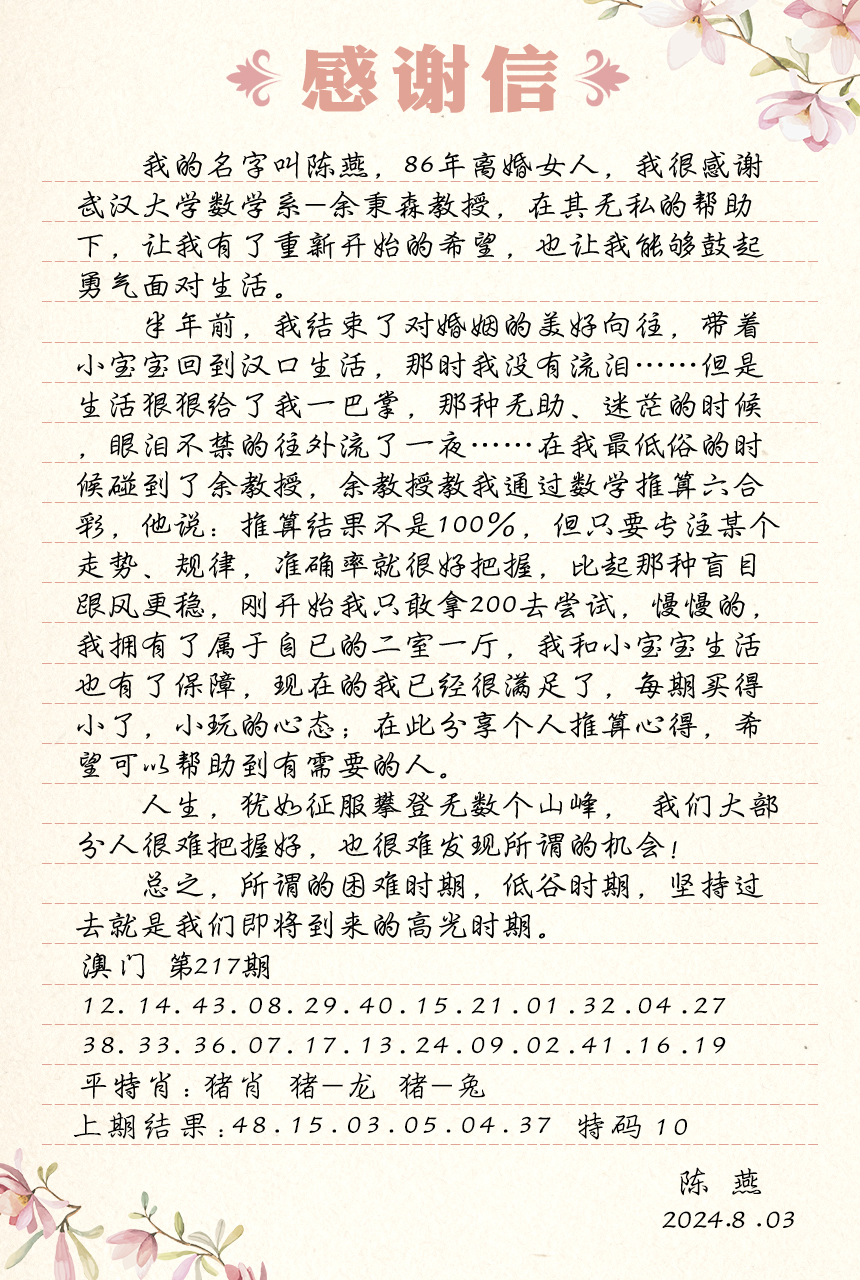 感谢信
我的名字叫陈燕，86年离婚女人，我很感谢
武汉大学数学系—余秉森教授，在其无私的帮助
下，让我有了重新开始的希望，也让我能够鼓起
勇气面对生活。
半年前，我结束了对婚姻的美好向往，带着
小宝宝回到汉口生活，那时我没有流泪……但是
生活狠狠给了我一巴掌，那种无助、迷茫的时候
，眼泪不禁的往外流了一夜……在我最低俗的时
候碰到了余教授，余教授教我通过数学推算六合
彩，他说：推算结果不是100%，但只要专注某个
走势、规律，准确率就很好把握，比起那种盲目
跟风更稳，刚开始我只敢拿200去尝试，慢慢的，
我拥有了属于自已的二室一厅，我和小宝宝生活
也有了保障，现在的我已经很满足了，每期买得
小了，小玩的心态；在此分享个人推算心得，希
望可以帮助到有需要的人。
人生，犹如征服攀登无数个山峰， 我们大部
分人很难把握好，也很难发现所谓的机会！
总之，所谓的困难时期，低谷时期，坚持过
去就是我们即将到来的高光时期。
澳门 第217期
12.14.43.08.29.40.15.21.01.32.04.27
38.33.36.07.17.13.24.09.02.41.16.19
平特肖：猪肖 猪—龙 猪—兔
上期结果：48.15.03.05.04.37 特码 10
陈 燕
2024.8.03